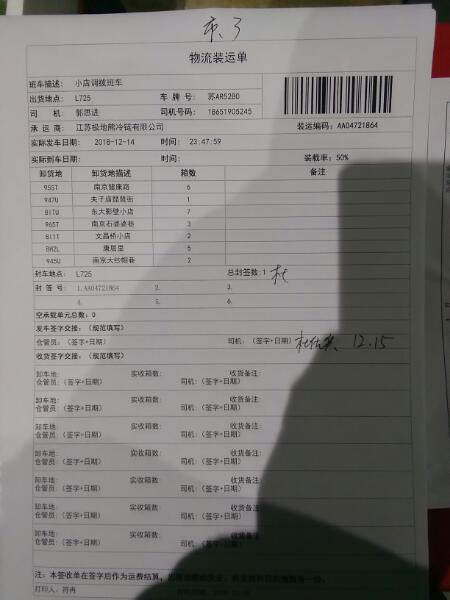 市3
物流装运单
班车描述: 小店调拨班车
出货地点: L725 车 牌 号: 苏AR52B0
司 机: 郭思进 司机号码: 18651905245
承 运 商: 江苏极地熊冷链有限公司 装运编码: AA04721864
实际发车日期: 2018-12-14 时间: 23:47:59
实际到车日期: 时间: 装载率: 50%
卸货地 卸货地描述 箱数 备注
955T 南京健康路 6
947U 夫子庙琵琶街 1
811U 东大影壁小店 7
965T 南京石婆婆巷 3
811T 文昌桥小店 2
BHZL 唐居里 5
945U 南京大纱帽巷 2
封车地点: L725 总封签数:1 杜
封 签 号: 1.AA04721864 2. 3.
4. 5. 6.
空承载单元总数: 0
发车签字交接: (规范填写)
仓管员: (签字+日期) 司机: (签字+日期) 12.15
收货签字交接: (规范填写)
卸车地: 实收箱数: 收货备注:
仓管员: (签字+日期) 司机: (签字+日期)
卸车地: 实收箱数: 收货备注:
仓管员: (签字+日期) 司机: (签字+日期)
卸车地: 实收箱数: 收货备注:
仓管员: (签字+日期) 司机: (签字+日期)
卸车地: 实收箱数: 收货备注:
仓管员: (签字+日期) 司机: (签字+日期)
卸车地: 实收箱数: 收货备注:
仓管员: (签字+日期) 司机: (签字+日期)
卸车地: 实收箱数: 收货备注:
仓管员: (签字+日期) 司机: (签字+日期)
卸车地: 实收箱数: 收货备注:
仓管员: (签字+日期) 司机: (签字+日期)
注: 本签收单在签字后作为运费结算,
打印人: 符冉